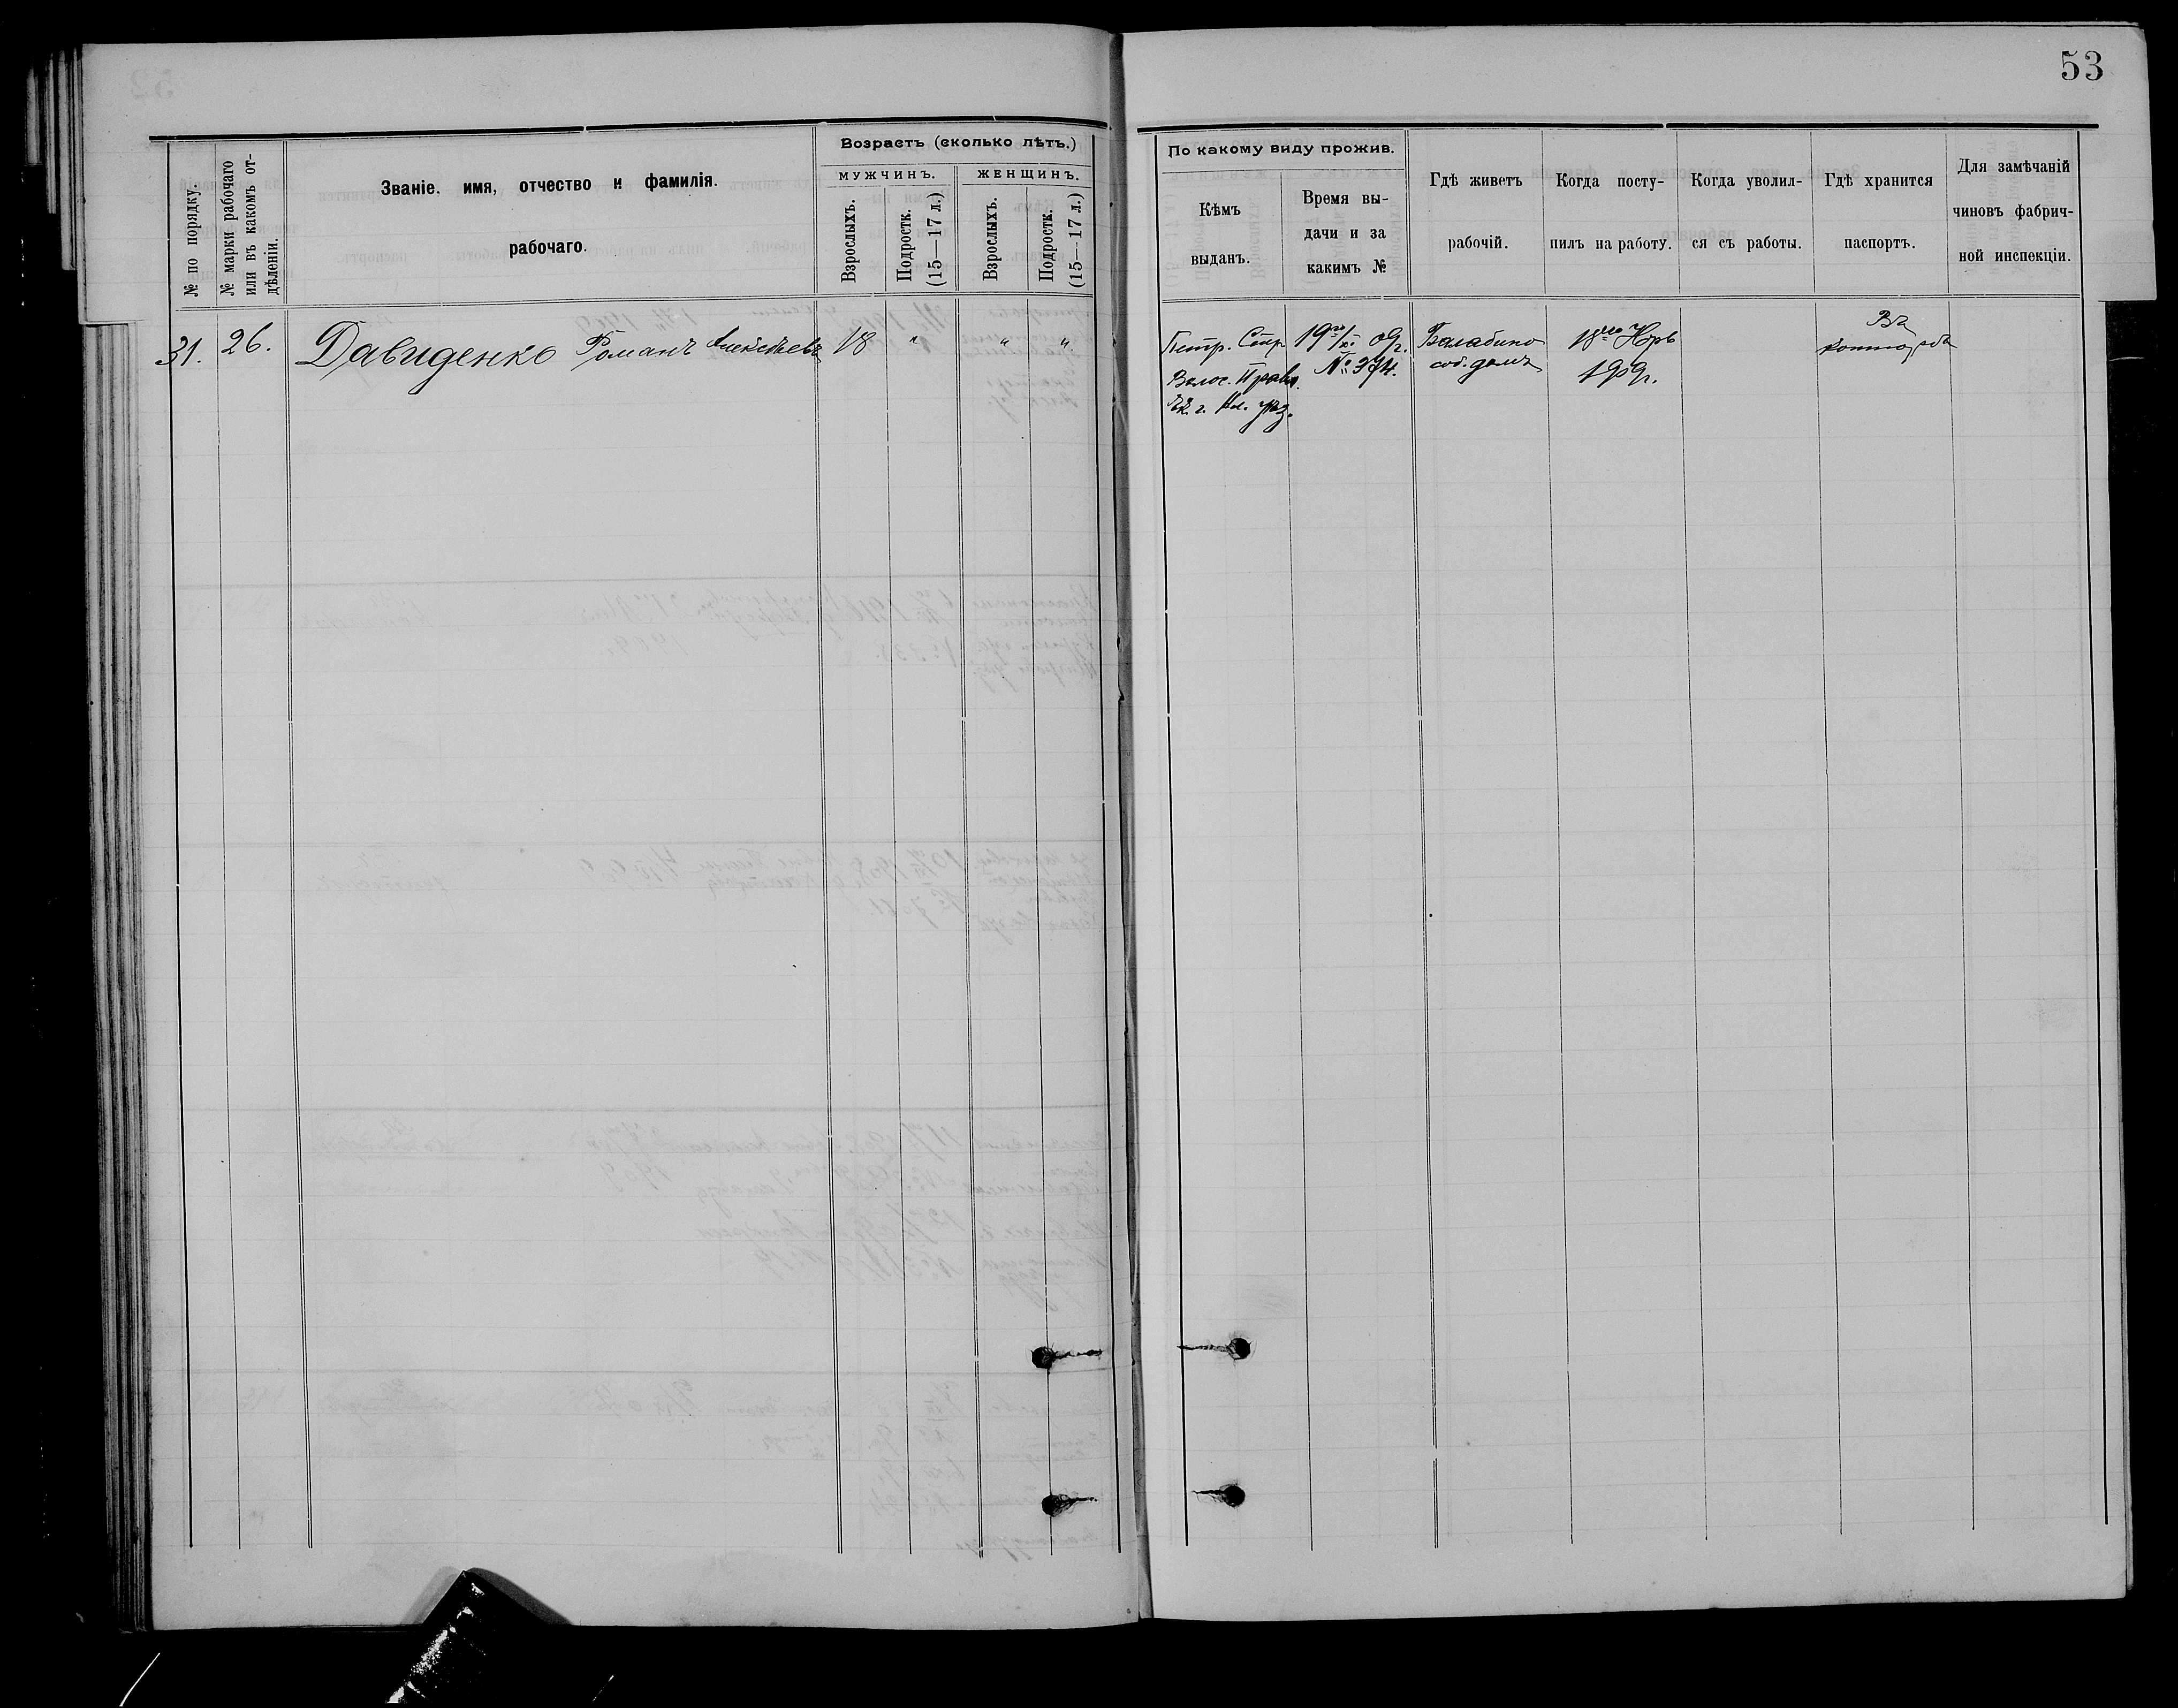 53
№ по порядку.
№ марки рабочаго
или въ какомъ от-
дѣленіи.
Званіе, имя, отчество и фамилія.
рабочаго.
Возрастъ (сколько лѣтъ.)
МУЖЧИНЪ.
Взрослыхъ.
Подростк.
(15—17 л.)
ЖЕНЩИНЪ.
Взрослыхъ.
Подростк.
(15—17 л.)
По какому виду прожив.
Кѣмъ
выданъ.
Время вы-
дачи и за
какимъ №
Гдѣ живетъ
рабочій.
Когда посту-
пилъ на работу.
Когда уволил-
ся съ работы.
Гдѣ хранится
паспортъ.
Для замѣчаній
чиновъ фабрич-
ной инспекціи.
31.
26.
Давиденко Романъ Алексѣевъ
18
"
"
"
Волос. Правл.
Ек. г. уѣз.
19го/XI 09г.
№ 374.
Балабино
соб. домъ
18го Нбрь
1909г.
Въ
конторѣ